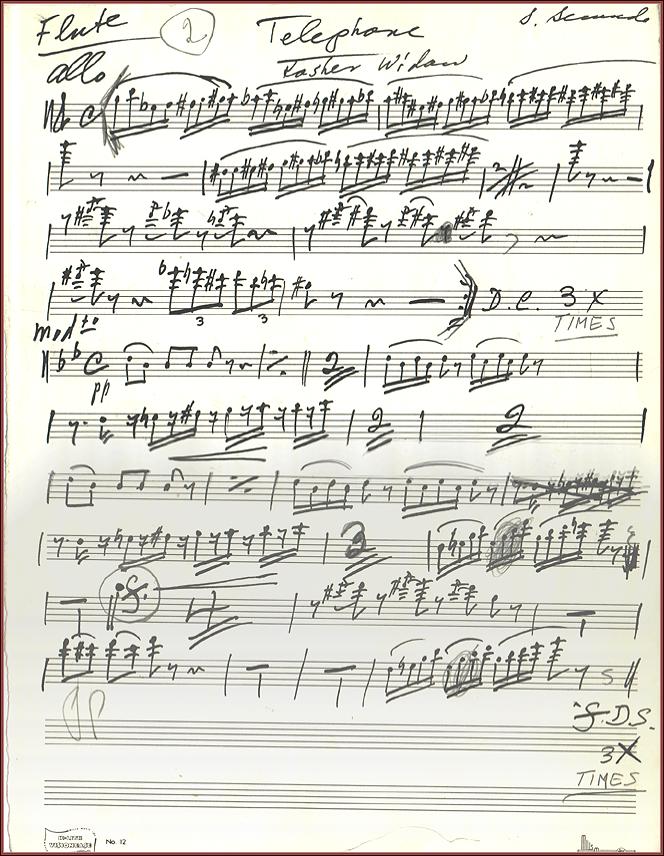 Flute 2 Telephone S. Secunda
allo Kosher Widow
3 3 D.C. 3X
TIMES
modto
pp
2
2 2
2
4
S
D.S.
3X
TIMES
No. 12